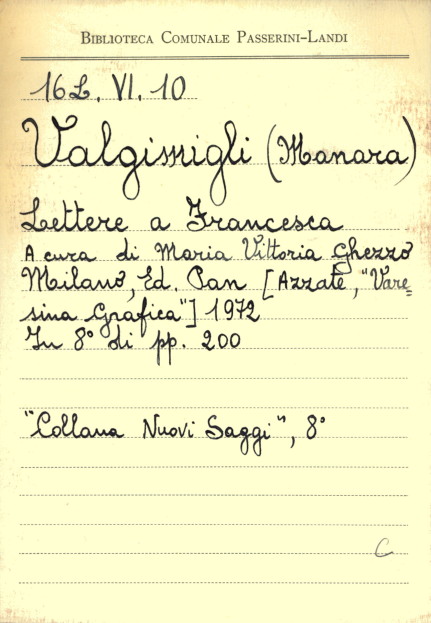 BIBLIOTECA COMUNALE PASSERINI-LANDI
16L. VI. 10
Valgimigli (Manara)
Lettere a Francesca
A cura di Maria Vittoria Ghezzo
Milano, Ed. Pan [Azzate, "Vare=
sina Grafica"] 1972
In 8° di pp. 200
"Collana Nuovi Saggi", 8°
C